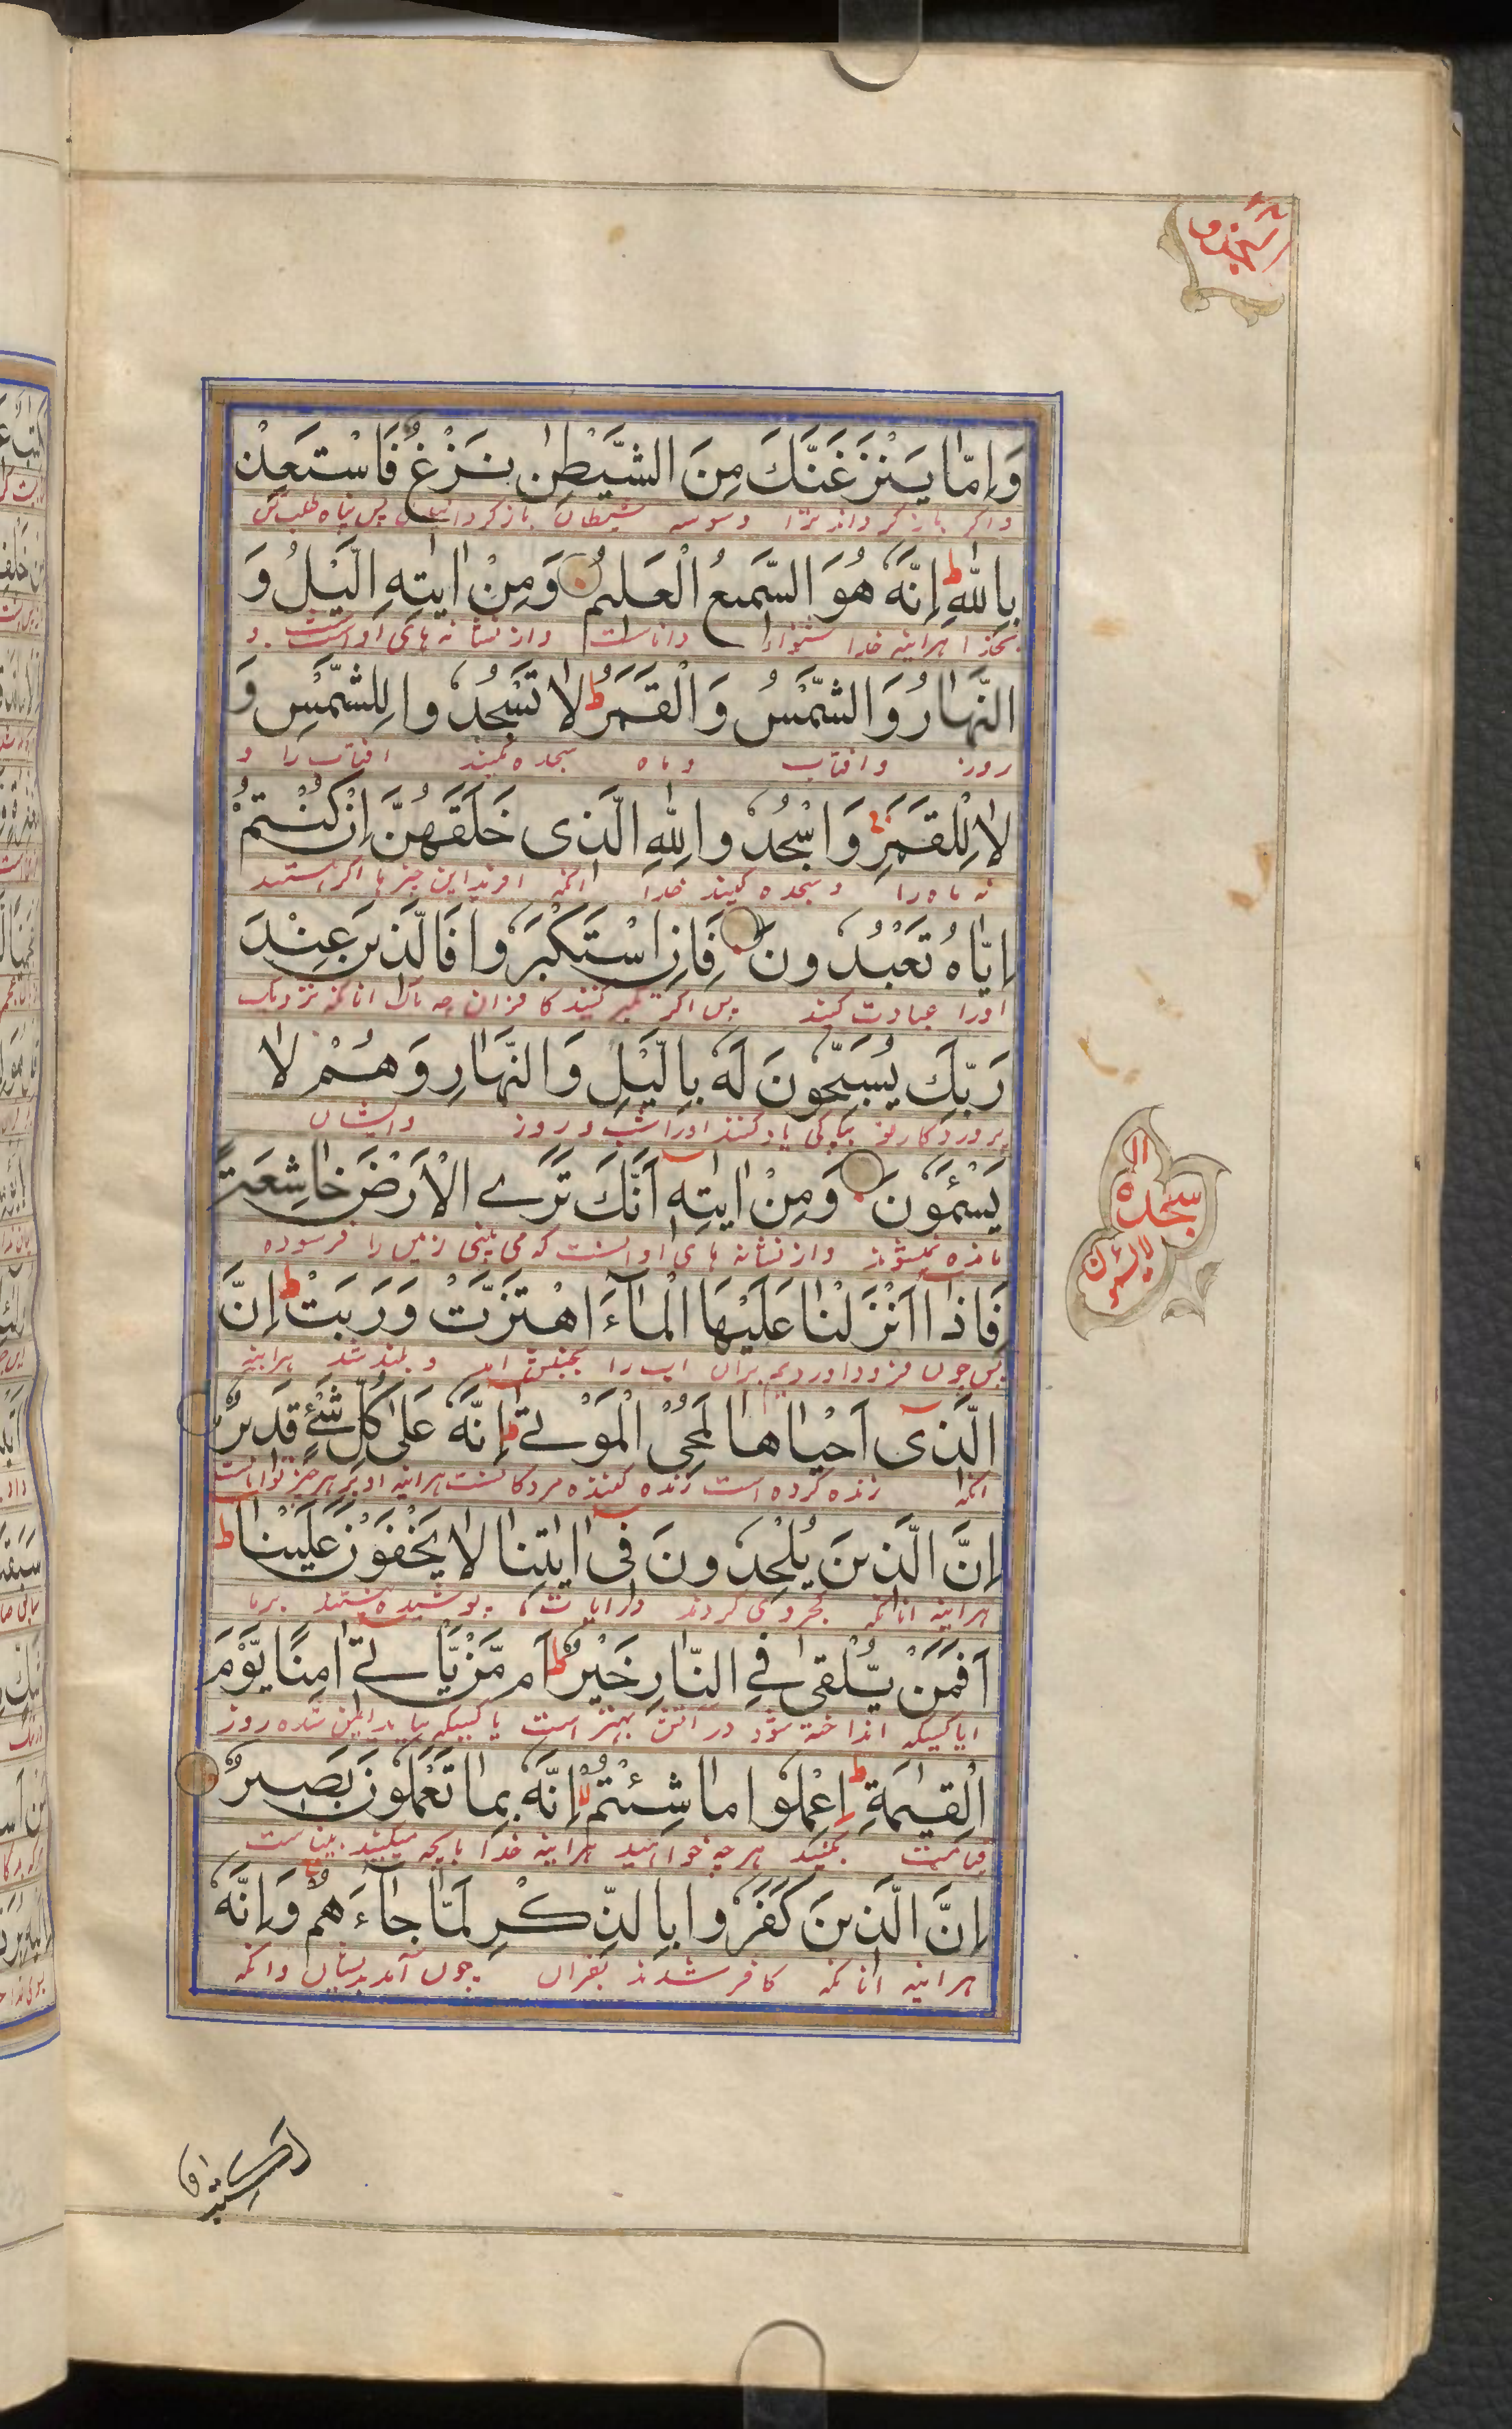 وَاِمَّا يَنْزَغَنَّكَ مِنَ الشَّيْطٰنِ نَزْغٌ فَاسْتَعِذْ
واکر بازکرداند ترا وسوسه شیطان پس پناه طلب کن
بِاللّٰهِ ؕ اِنَّهٗ هُوَ السَّمِيعُ الْعَلِيمُ وَمِنْ اٰيٰتِهِ الَّيْلُ وَ
بخدا هرآینه خدا شنوا داناست واز نشانه های اوست و
النَّهَارُ وَالشَّمْسُ وَالْقَمَرُ ؕ لَا تَسْجُدُوا لِلشَّمْسِ وَ
روز وافتاب وماه سجده مکنید افتاب را و
لَا لِلْقَمَرِ وَاسْجُدُوا لِلّٰهِ الَّذِى خَلَقَهُنَّ اِنْ كُنْتُمْ
نه ماه را وسجده کنید خدا آنکه افرید این چیزها اکر هستید
اِيَّاهُ تَعْبُدُونَ فَاِنِ اسْتَكْبَرُوا فَالَّذِينَ عِنْدَ
اورا عبادت کنید پس اکر تکبر کنند کافران چه باک انانکه نزدیک
رَبِّكَ يُسَبِّحُونَ لَهٗ بِالَّيْلِ وَالنَّهَارِ وَهُمْ لَا
پروردکار تو بپاکی یاد کنند اورا شب و روز وایشان
يَسْئَمُونَ وَمِنْ اٰيٰتِهٖ اَنَّكَ تَرَے الْاَرْضَ خَاشِعَةً
مانده نمیشوند واز نشانه های اوست که می بینی زمین را فرسوده
فَاِذَا اَنْزَلْنَا عَلَيْهَا الْمَآءَ اهْتَزَّتْ وَرَبَتْ ؕ اِنَّ
پس چون فرود اوردیم بران اب را بجنبش امد و بلند شد هرآینه
الَّذِىٓ اَحْيَاهَا لَمُحْىِ الْمَوْتٰے ؕ اِنَّهٗ عَلٰى كُلِّ شَىْءٍ قَدِيرٌ
آنکه زنده کرده است زنده کننده مردکانست هرآینه او بر هرچیز تواناست
اِنَّ الَّذِينَ يُلْحِدُونَ فِىٓ اٰيٰتِنَا لَا يَخْفَوْنَ عَلَيْنَا ؕ
هرآینه انانکه کجروی کردند در ایات ما پوشیده نیستند برما
اَفَمَنْ يُّلْقٰى فِے النَّارِ خَيْرٌ اَمْ مَّنْ يَّاْتِےٓ اٰمِنًا يَّوْمَ
ایا کسیکه انداخته شود در آتش بهتر است یا کسیکه بیاید ایمن شده روز
الْقِيٰمَةِ ؕ اِعْمَلُوا مَا شِئْتُمْ اِنَّهٗ بِمَا تَعْمَلُونَ بَصِيرٌ
قیامت بکنید هرچه خواهید هرآینه خدا بانچه میکنید بیناست
اِنَّ الَّذِينَ كَفَرُوا بِالذِّكْرِ لَمَّا جَآءَهُمْ وَاِنَّهٗ
هرآینه انانکه کافر شدند بقران چون آمد بدیشان وانکه
السجدة
سجده
لا يسئمون
لكتب